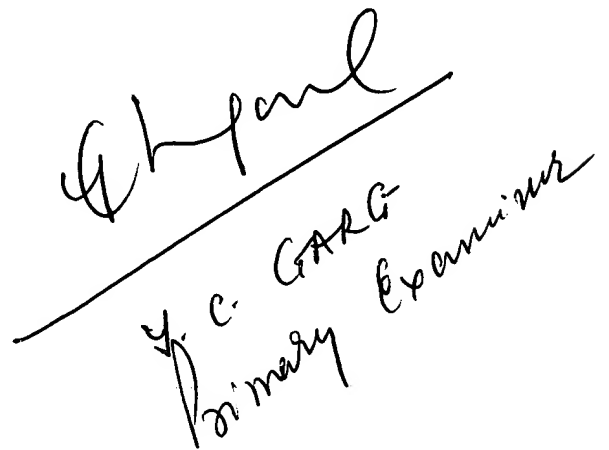 Y. C. GARG
Primary Examiner